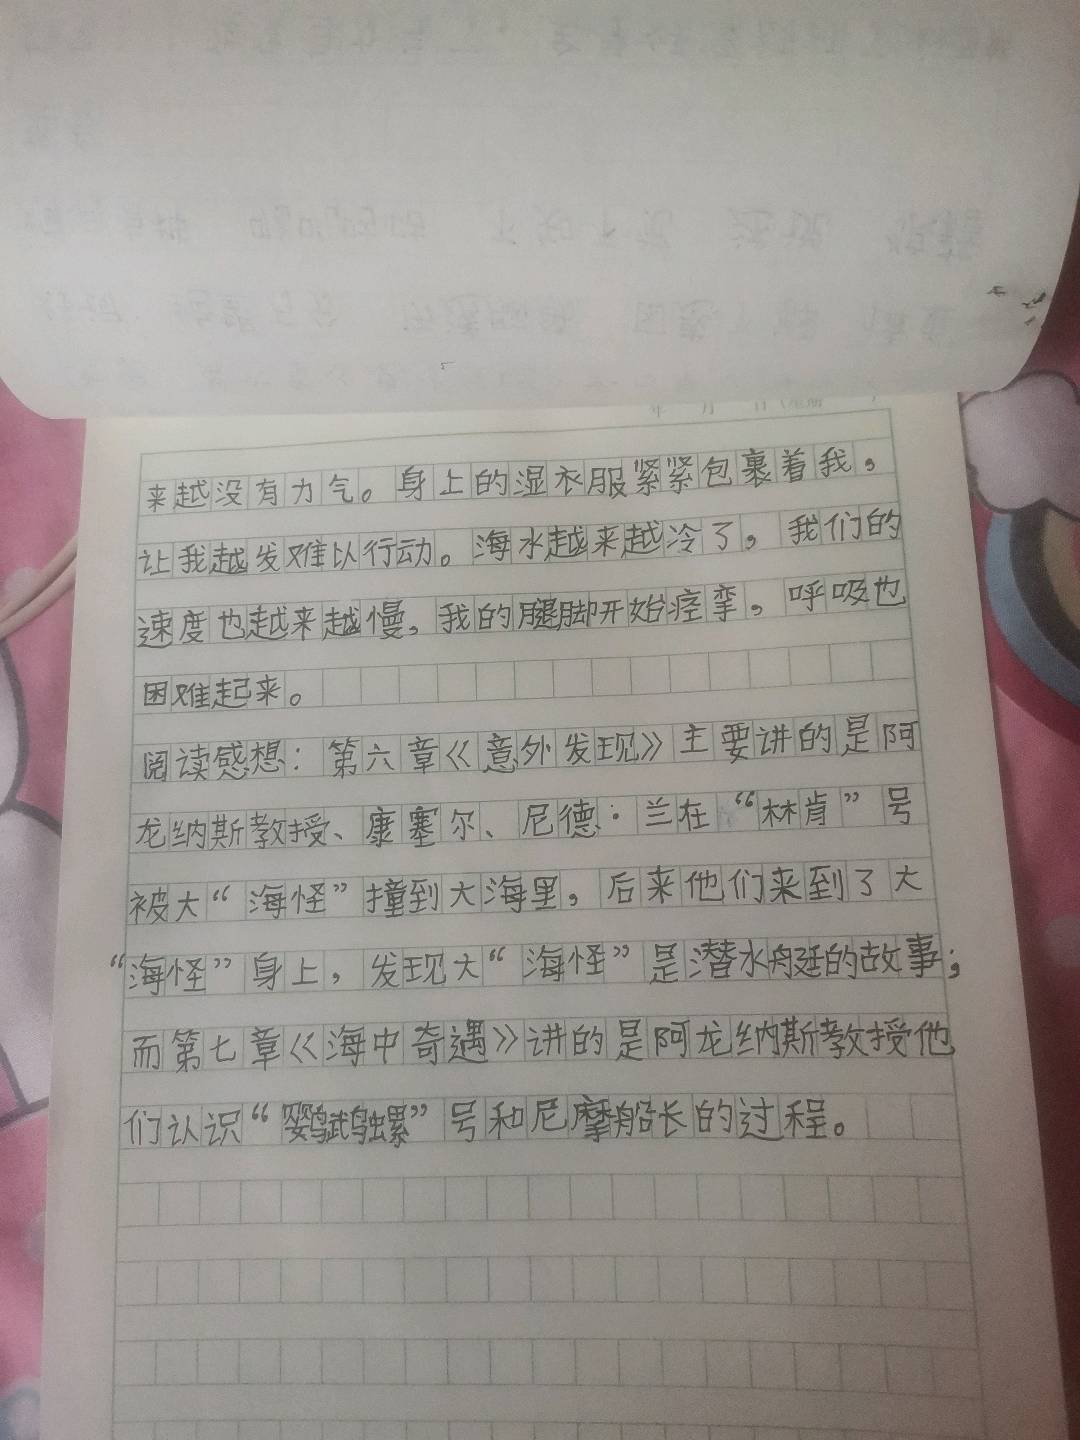 来越没有力气。身上的湿衣服紧紧包裹着我，
让我越发难以行动。海水越来越冷了，我们的
速度也越来越慢，我的腿脚开始痉挛，呼吸也
困难起来。
阅读感想：第六章《意外发现》主要讲的是阿
龙纳斯教授、康塞尔、尼德·兰在“林肯”号
被大“海怪”撞到大海里，后来他们来到了大
“海怪”身上，发现大“海怪”是潜水舟廷的故事；
而第七章《海中奇遇》讲的是阿龙纳斯教授他
们认识“鹦鹉螺”号和尼摩船长的过程。